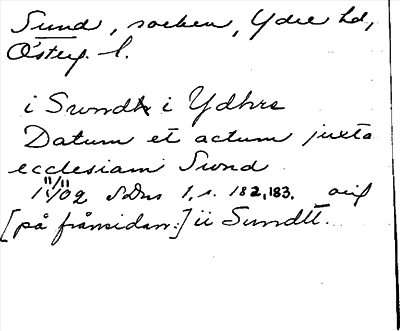 Sund, socken, Ydre hd,
Österg. l.
i Swndh i Ydhre
Datum et actum juxta
ecclesiam Swnd
11/11 1402 SDns 1, s. 182, 183. orig
[på frånsidan:] ii Sundtt.